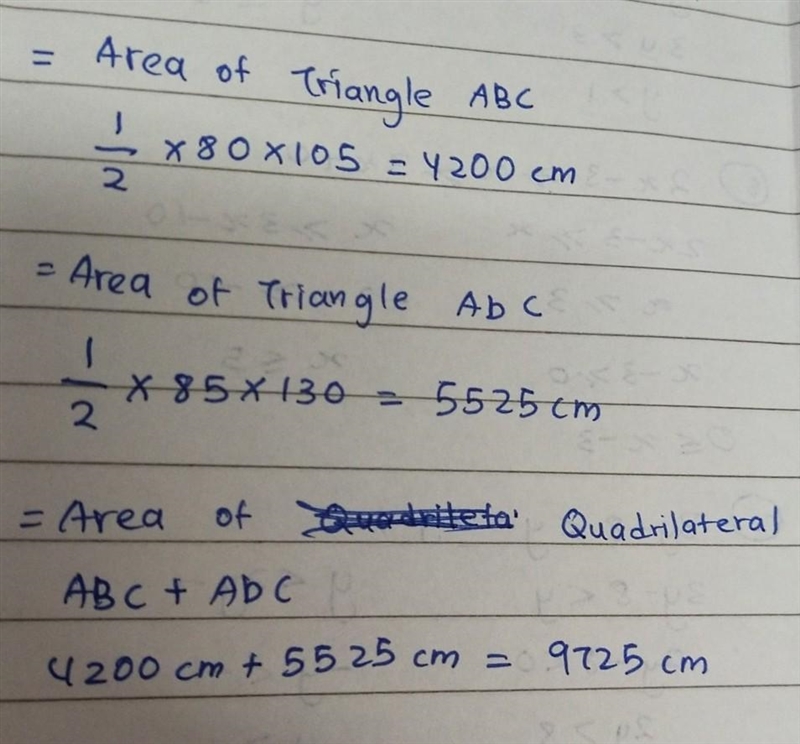 = Area of Triangle ABC
1/2 × 80 × 105 = 4200 cm
= Area of Triangle AbC
1/2 × 85 × 130 = 5525 cm
= Area of Quadrilateral
ABC + ADC
4200 cm + 5525 cm = 9725 cm